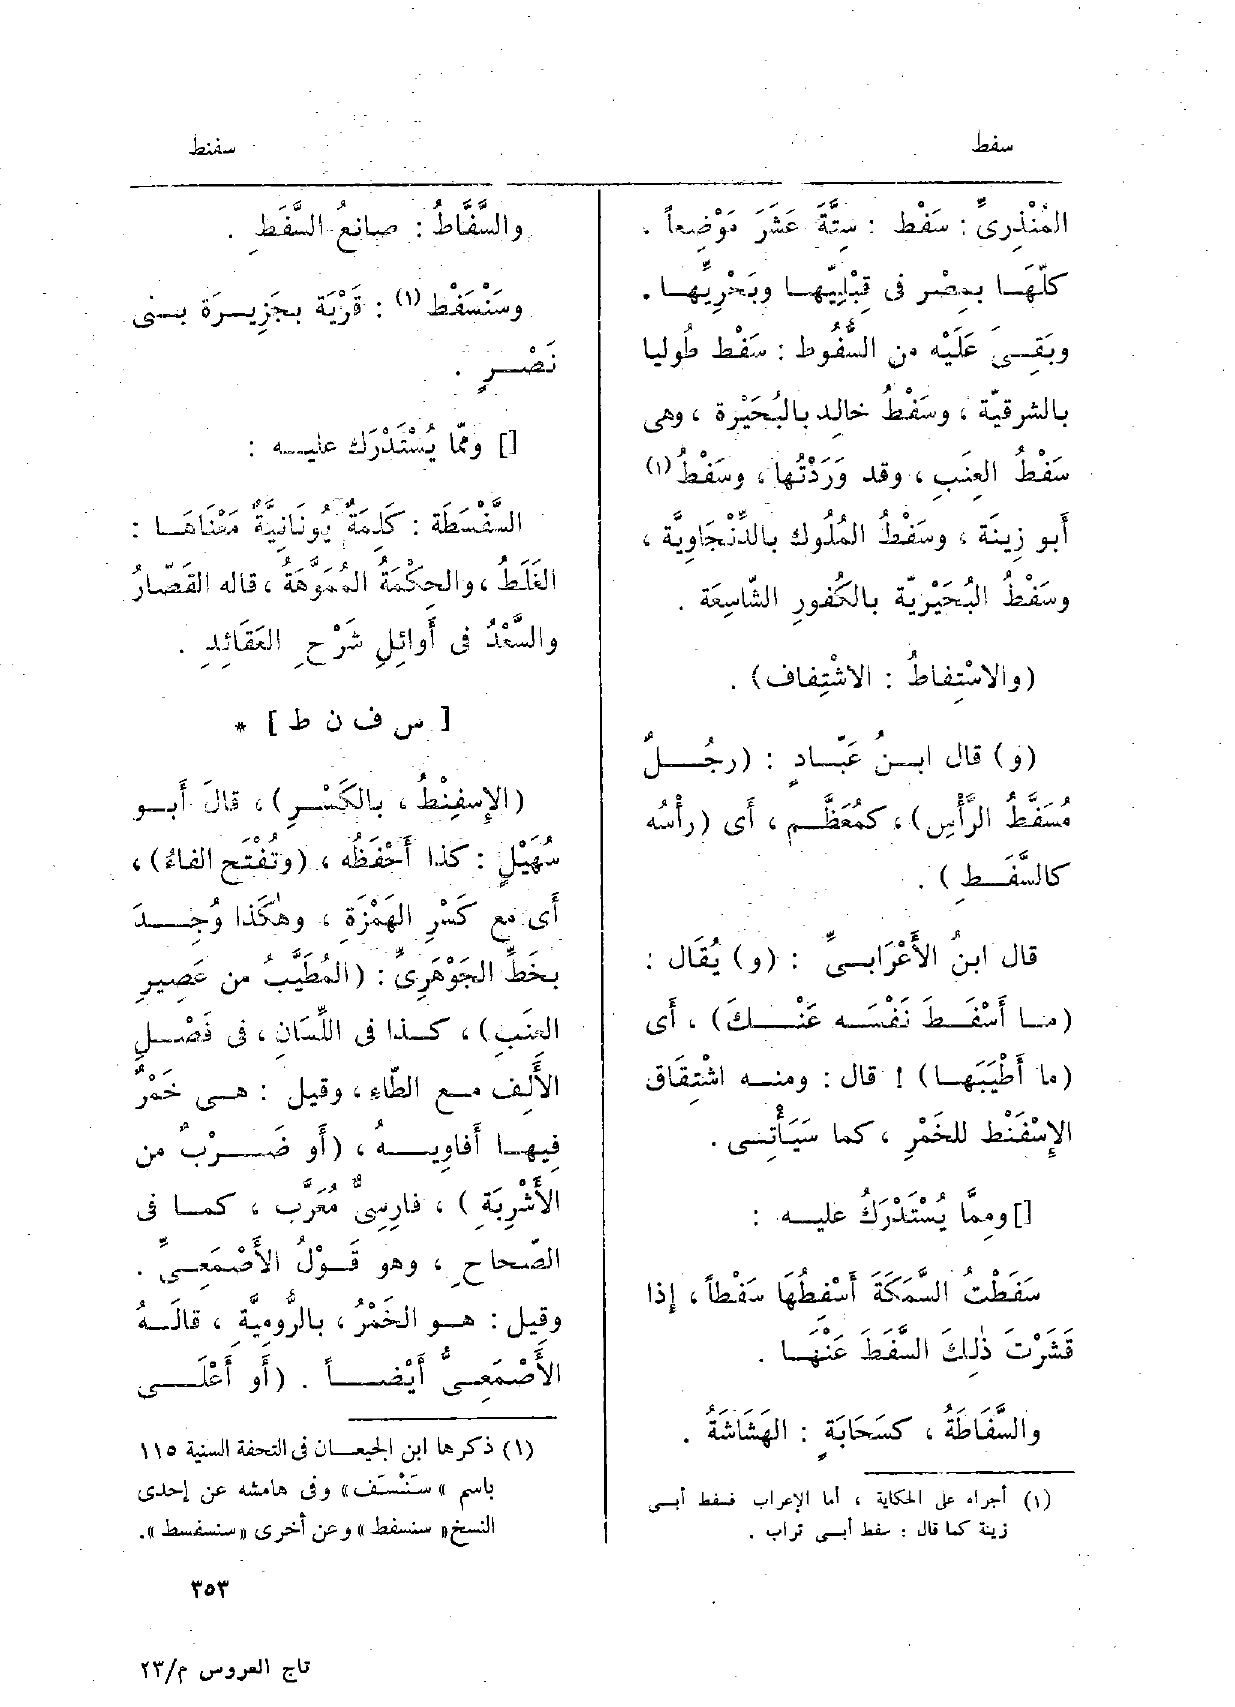 سفط
سفنط
المُنْذِرِىِّ : سَفْط : سِتَّةَ عَشَرَ مَوْضِعاً .
كلّهَا بمِصْر فى قِبْلِيّها وبَحْرِيِّها .
وبَقِىَ عَلَيْه من السُّفُوط : سَفْط طُوليا
بالشرقيّة ، وسَفْطُ خالِد بالبُحَيْرة ، وهى
سَفْطُ العِنَبِ ، وقد وَرَدْتُها ، وسَفْطُ (١)
أبو زِينَة ، وسَفْطُ المُلُوك بالدِّنْجَاوِيَّة ،
وسَفْطُ البُحَيْرِيّة بالكُفورِ الشَّاسِعَة .
(والاسْتِفاطُ : الاشْتِفاف) .
(و) قال ابنُ عَبّادٍ : (رجُلٌ
مُسَفَّطُ الرَّأْسِ) ، كمُعَظَّم ، أى (رأْسُه
كالسَّفَط ) .
قال ابنُ الأَعْرَابىِّ : (و) يُقَال :
(ما أَسْفَطَ نَفْسَه عَنْكَ) ، أَى
(ما أَطْيَبَها) ! قال : ومنه اشْتِقَاق
الإِسْفَنْط للخَمْرِ ، كما سَيَأْتى .
[] ومِمَّا يُسْتَدْرَكُ عليه :
سَفَطْتُ السَّمَكَةَ أَسْفِطُهَا سَفْطاً ، إِذا
قَشَرْتَ ذٰلِكَ السَّفَطَ عَنْها .
والسَّفَاطَةُ ، كسَحَابَةٍ : الهَشَاشَةُ .
(١) أجراه على الحكاية ، أما الإعراب فسفط أبى
زينة كما قال : سفط أبى تراب .
والسَّفَّاطُ : صانعُ السَّفَطِ .
وسَنْسَفْط (١) : قَرْيَة بجَزِيرَة بنى
نَصْرٍ .
[] وممّا يُسْتَدْرَك عليه :
السَّفْسَطَة : كَلِمَةٌ يُونَانِيَّةٌ مَعْنَاهَا :
الغَلَطُ ، والحِكْمَةُ المُمَوَّهَةُ ، قاله القَصّارُ
والسَّعْدُ فى أَوائِلِ شَرْحِ العَقَائِدِ .
[ س ف ن ط ] *
(الإِسفِنْطُ ، بالكَسْرِ) ، قالَ أَبو
سُهَيْلٍ : كذا أَحْفَظُه ، (وتُفْتَح الفاءُ) ،
أَى مع كَسْرِ الهَمْزَةِ ، وهٰكَذا وُجِدَ
بخَطِّ الجَوْهَرِىِّ : (المُطَيَّبُ من عَصِيرِ
العِنَبِ) ، كذا فى اللِّسَانِ ، فى فَصْلِ
الأَلِف مع الطّاءِ ، وقيل : هى خَمْرٌ
فِيها أَفاوِيهُ ، (أَو ضَرْبٌ من
الأَشْرِبَةِ ) ، فارِسىٌّ مُعَرَّب ، كما فى
الصّحاحِ ، وهو قَوْلُ الأَصْمَعِىِّ .
وقيل : هو الخَمْرُ ، بالرُّومِيَّةِ ، قالَهُ
الأَصْمَعِىُّ أَيْضاً . (أَو أَعْلَى
(١) ذكرها ابن الجيعان فى التحفة السنية ١١٥
باسم «سَنْسَف» وفى هامشه عن إحدى
النسخ «سنسفط» وعن أخرى «سنسفسط».
٣٥٣
تاج العروس م/٢٣